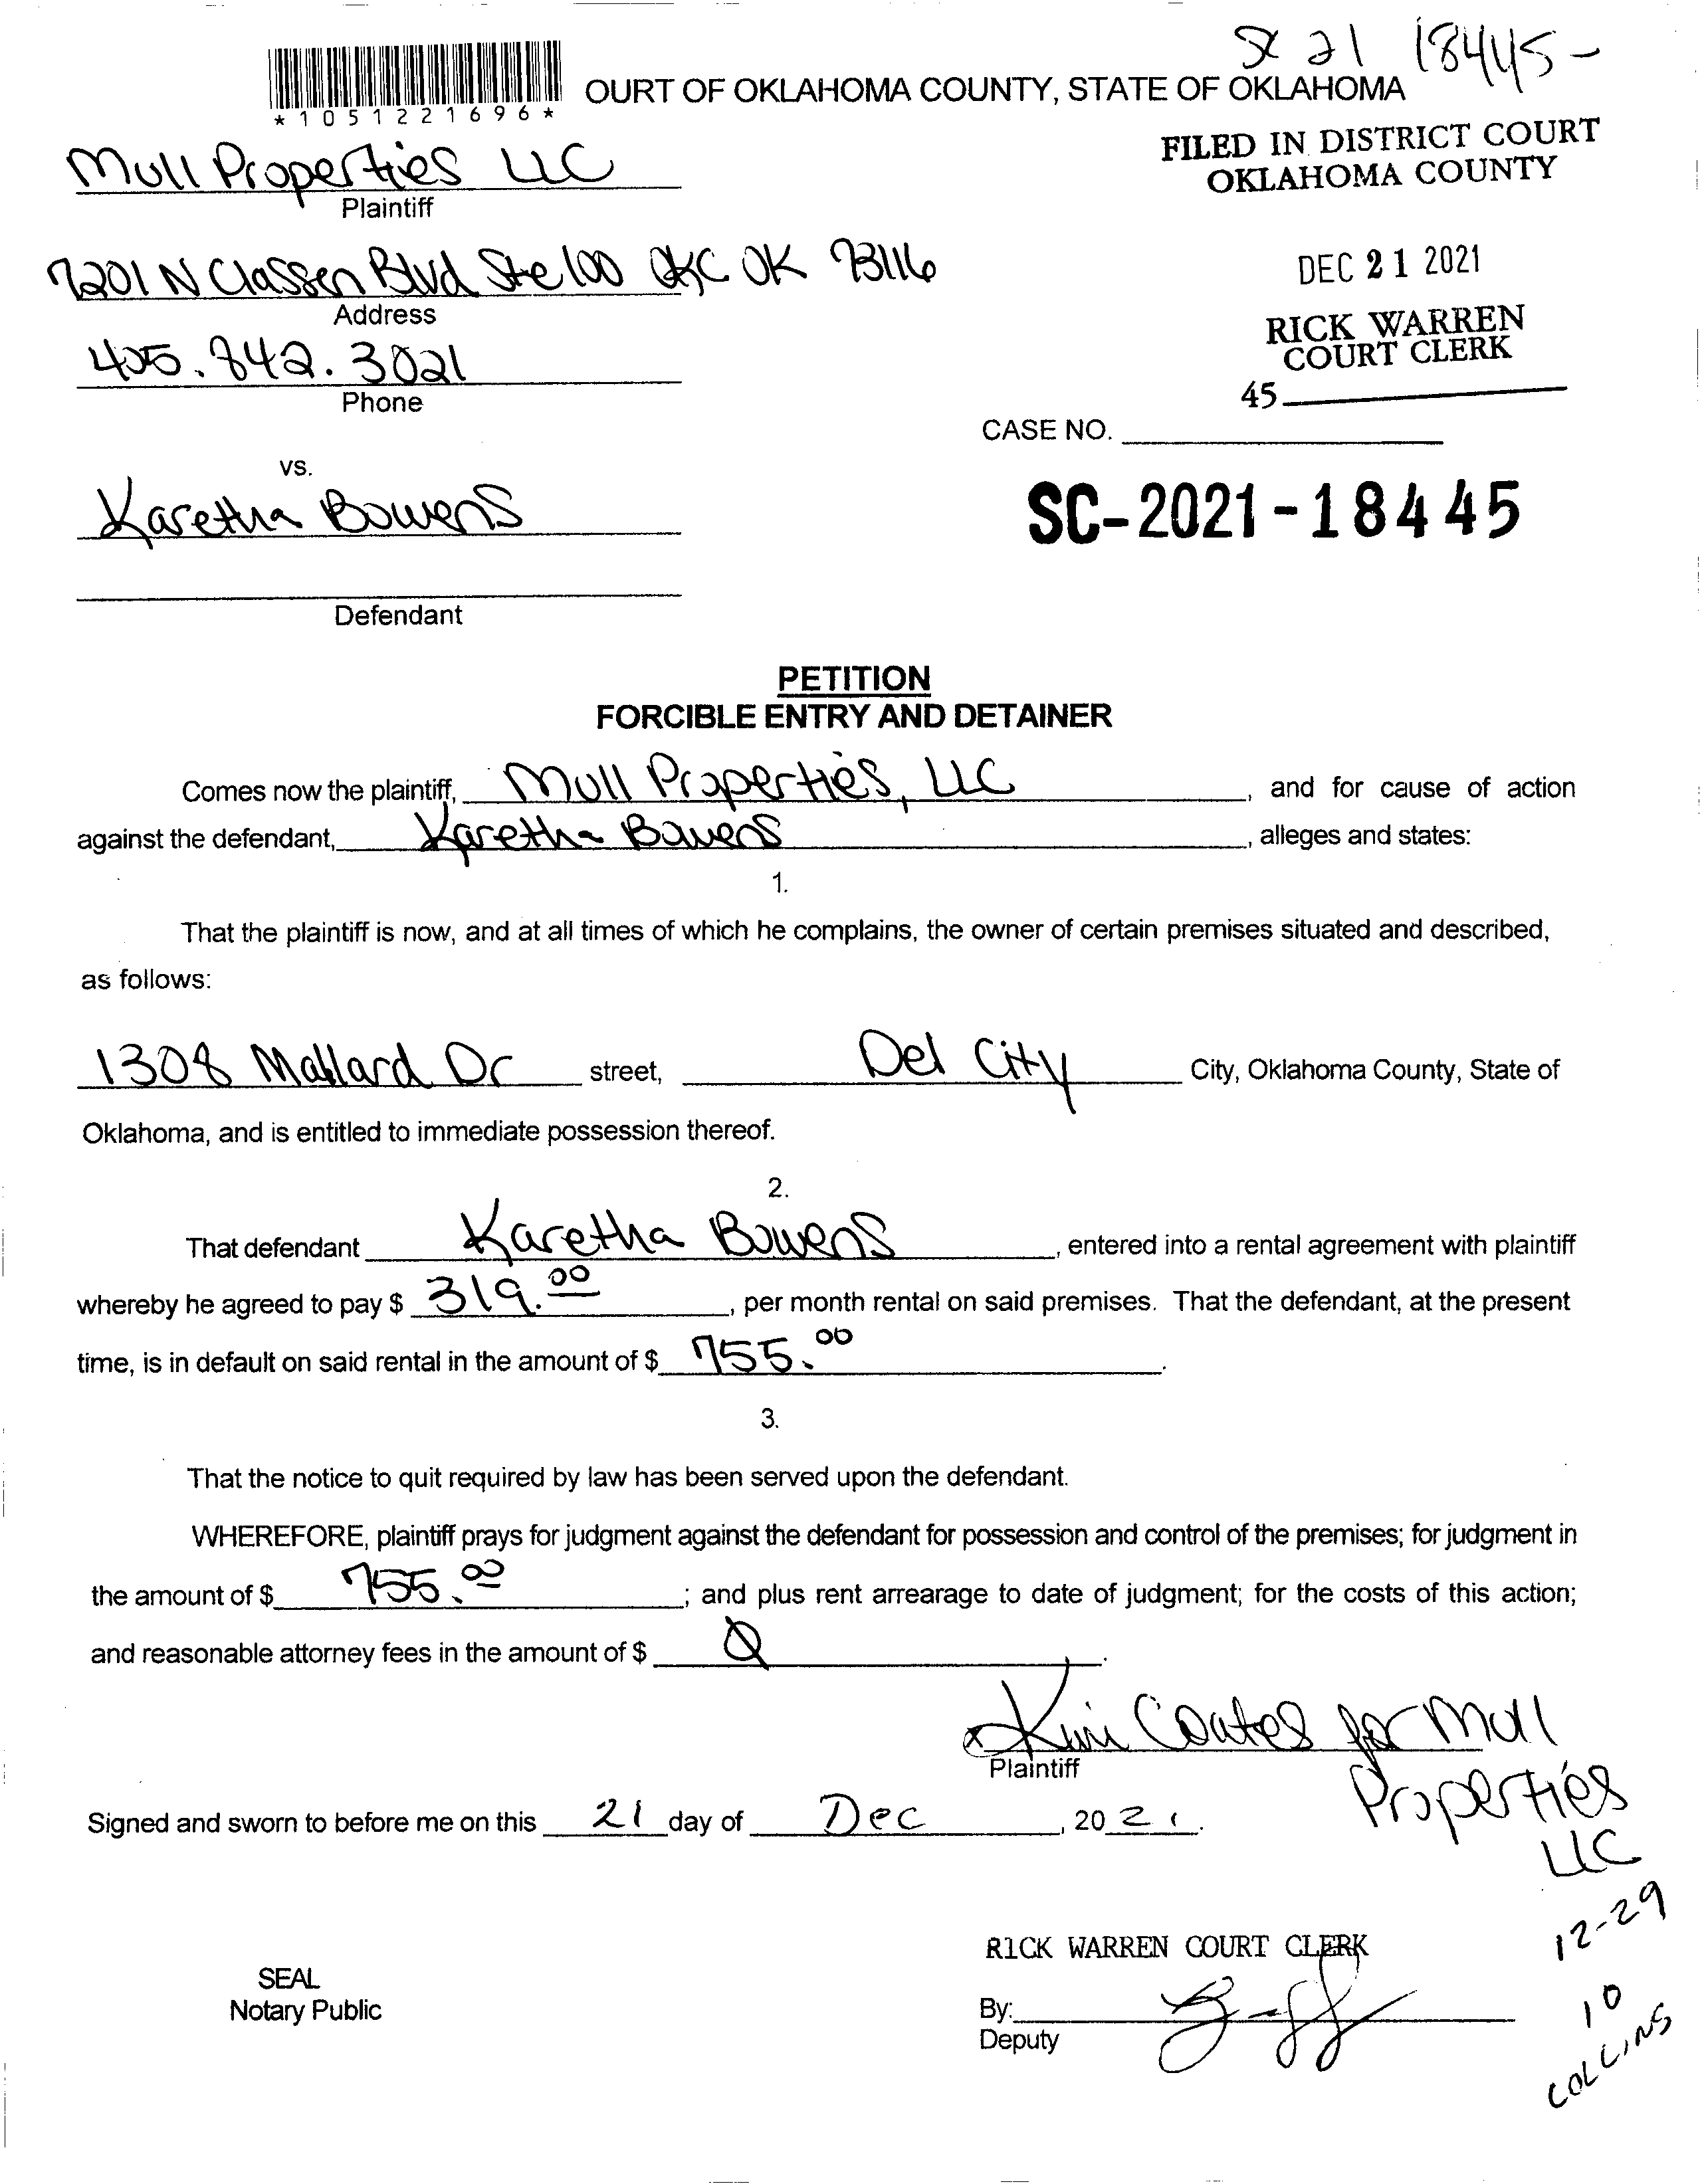 SC 21 18445-
OURT OF OKLAHOMA COUNTY, STATE OF OKLAHOMA
*1051221696*
FILED IN DISTRICT COURT
OKLAHOMA COUNTY
Mull Properties LLC
Plaintiff
7201 N Classen Blvd Ste 100 OKC OK 73116
Address
DEC 21 2021
RICK WARREN
COURT CLERK
405.842.3021
Phone
45
CASE NO.
vs.
Karetha Bowens
SC-2021-18445
Defendant
PETITION
FORCIBLE ENTRY AND DETAINER
Comes now the plaintiff, Mull Properties, LLC, and for cause of action
against the defendant, Karetha Bowens, alleges and states:
1.
That the plaintiff is now, and at all times of which he complains, the owner of certain premises situated and described,
as follows:
1308 Mallard Dr street, Del City City, Oklahoma County, State of
Oklahoma, and is entitled to immediate possession thereof.
2.
That defendant Karetha Bowens, entered into a rental agreement with plaintiff
whereby he agreed to pay $ 319.00, per month rental on said premises. That the defendant, at the present
time, is in default on said rental in the amount of $ 755.00.
3.
That the notice to quit required by law has been served upon the defendant.
WHEREFORE, plaintiff prays for judgment against the defendant for possession and control of the premises; for judgment in
the amount of $ 755.00; and plus rent arrearage to date of judgment; for the costs of this action;
and reasonable attorney fees in the amount of $ Ø.
x Kimi Coates for Mull
Plaintiff
Properties
LLC
Signed and sworn to before me on this 21 day of Dec, 2021.
12-29
10
COLLINS
RICK WARREN COURT CLERK
SEAL
Notary Public
By:
Deputy